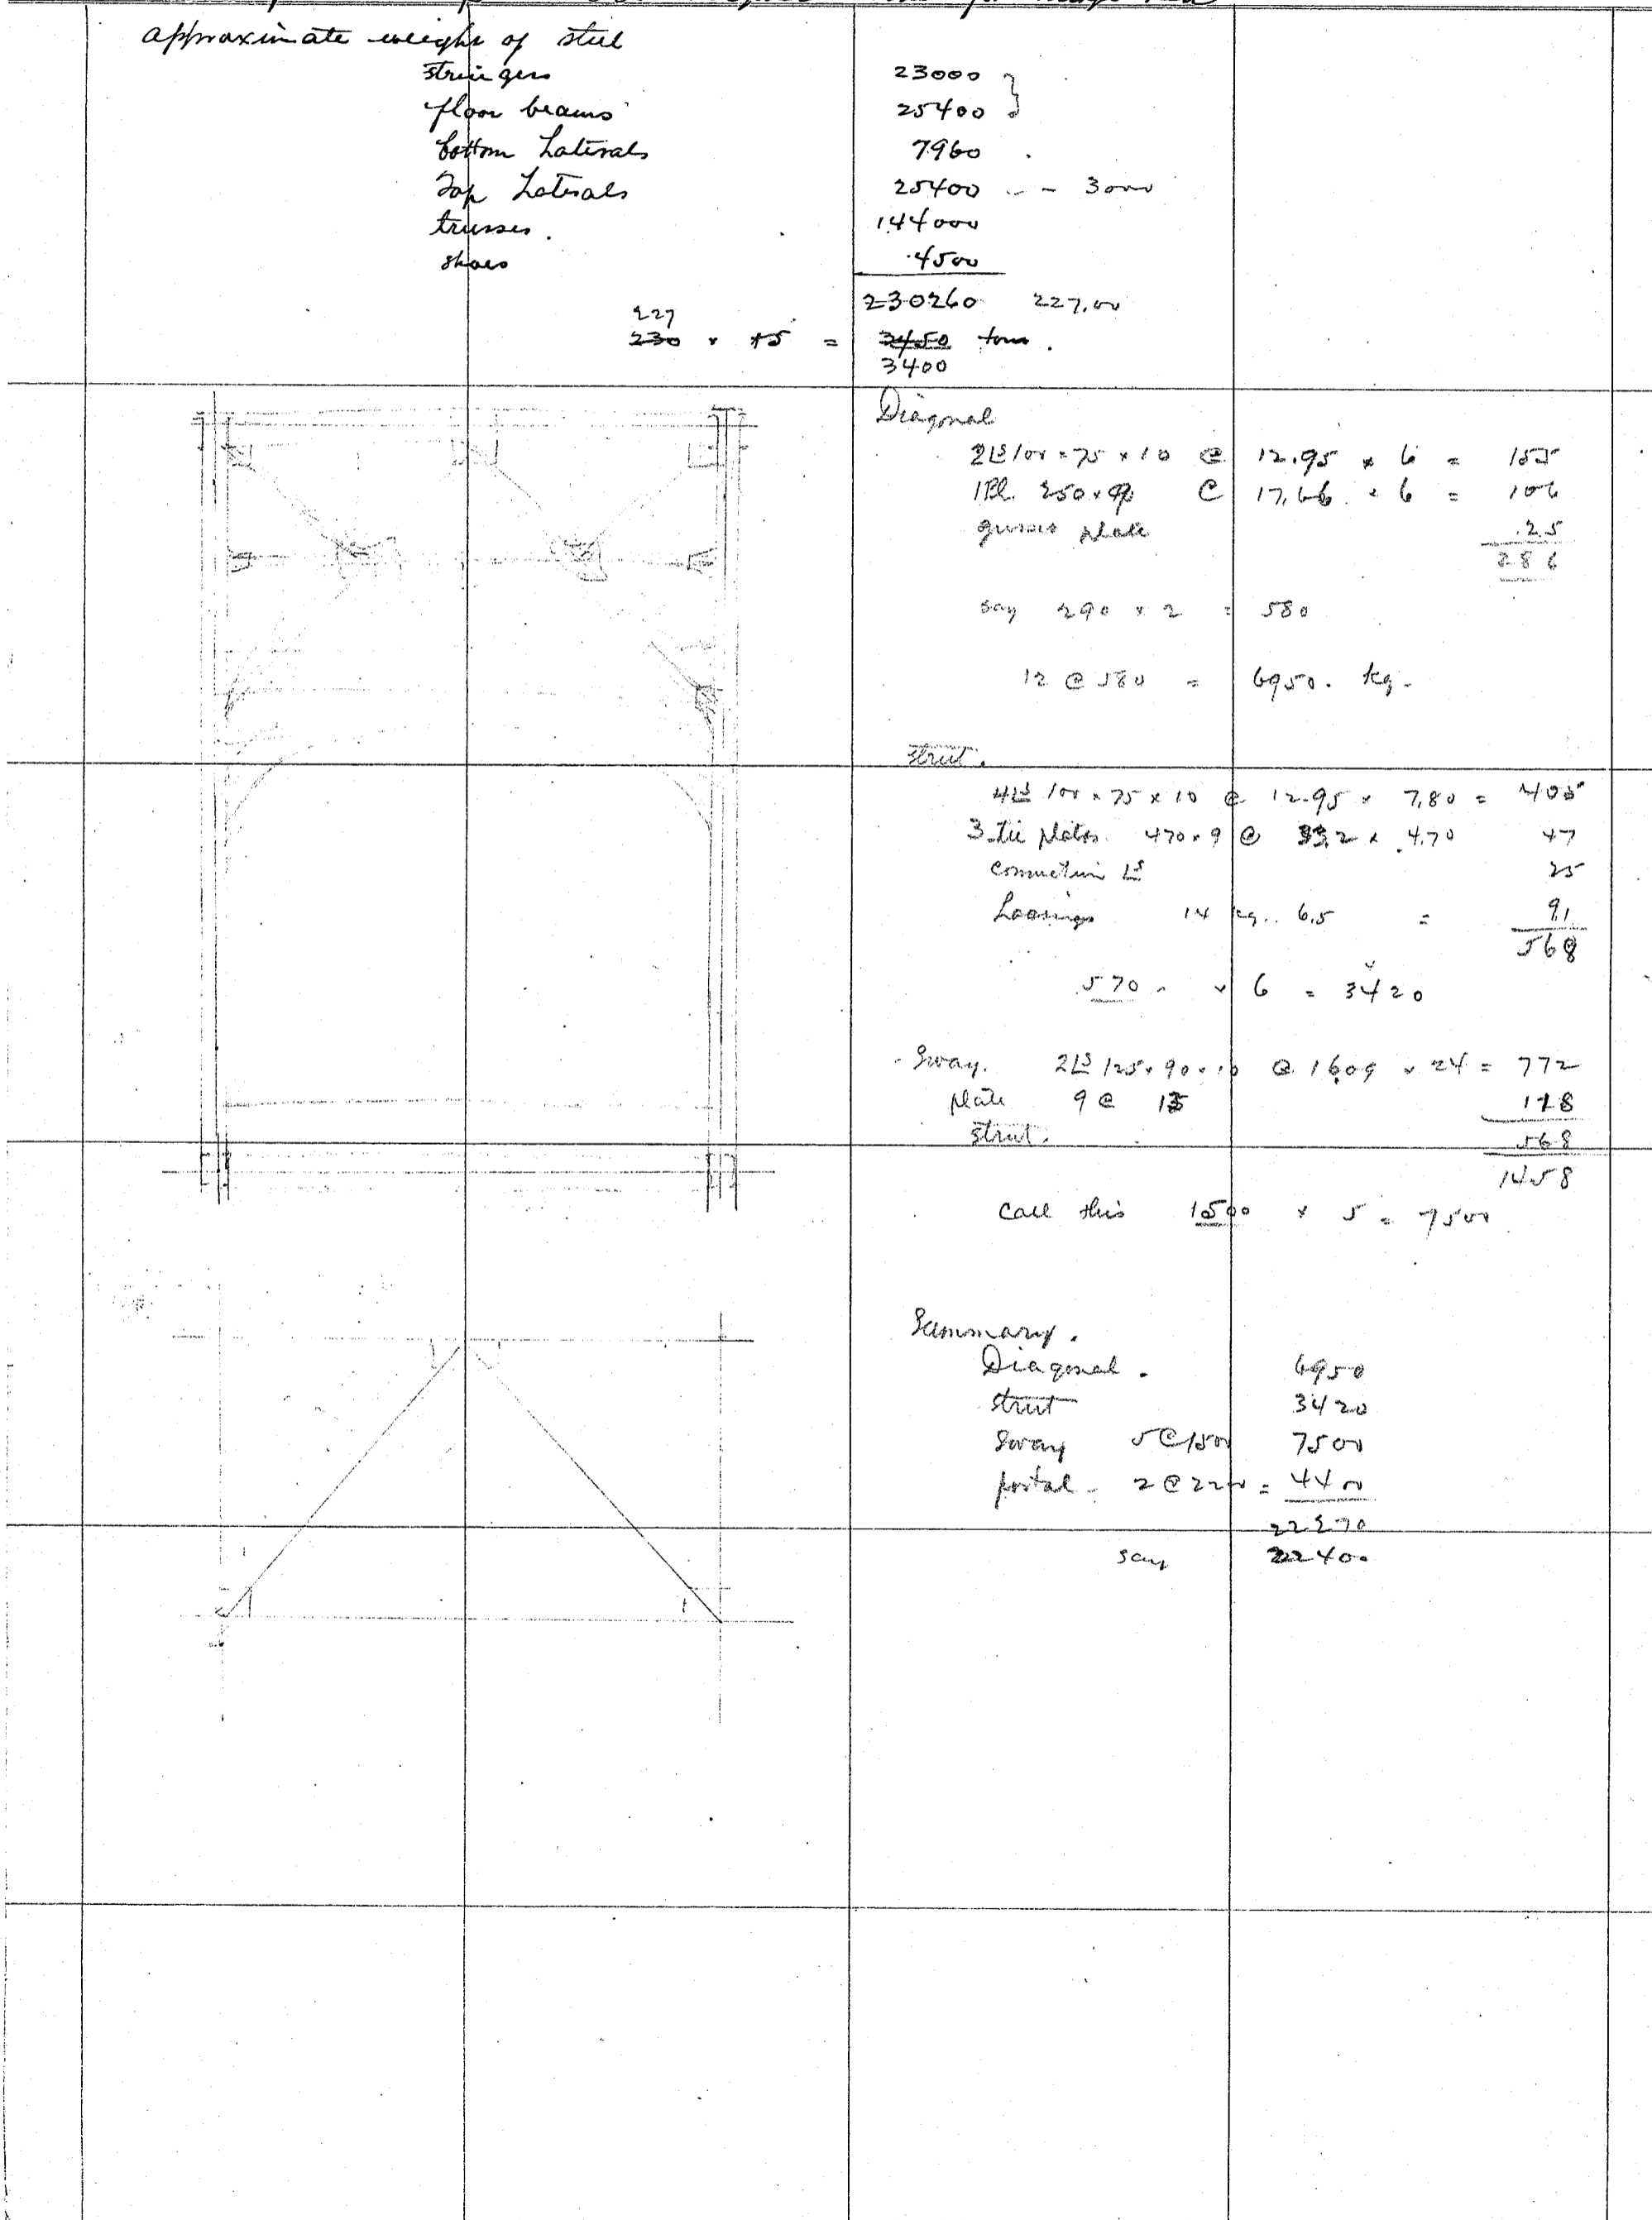 approximate weight of steel
stringers 23000
floor beams 25400
bottom Laterals 7960
Top Laterals 25400 -- 3000
trusses. 144000
shoes 4500
230260 227.00
227
230 × 15 = 3450 tons.
3400
Diagonal
2Ls 100 × 75 × 10 @ 12.95 × 6 = 155
1Pl. 250 × 9 @ 17.66 × 6 = 106
gusset plate 25
286
say 290 × 2 = 580
12 @ 580 = 6950. kg.
strut.
4Ls 100 × 75 × 10 @ 12.95 × 7.80 = 405
3 tie plates 470 × 9 @ 33.2 × .470 47
connection Ls 25
Lacings 14 kg.. 6.5 = 91
568
570 × 6 = 3420
Sway. 2Ls 125 × 90 × 10 @ 16.09 × 24 = 772
plate 9 @ 13 118
strut. 568
1458
Call this 1500 × 5 = 7500
Summary.
Diagonal. 6950
strut 3420
Sway 5@1500 7500
portal - 2 @ 2200 = 4400
22270
say 22400